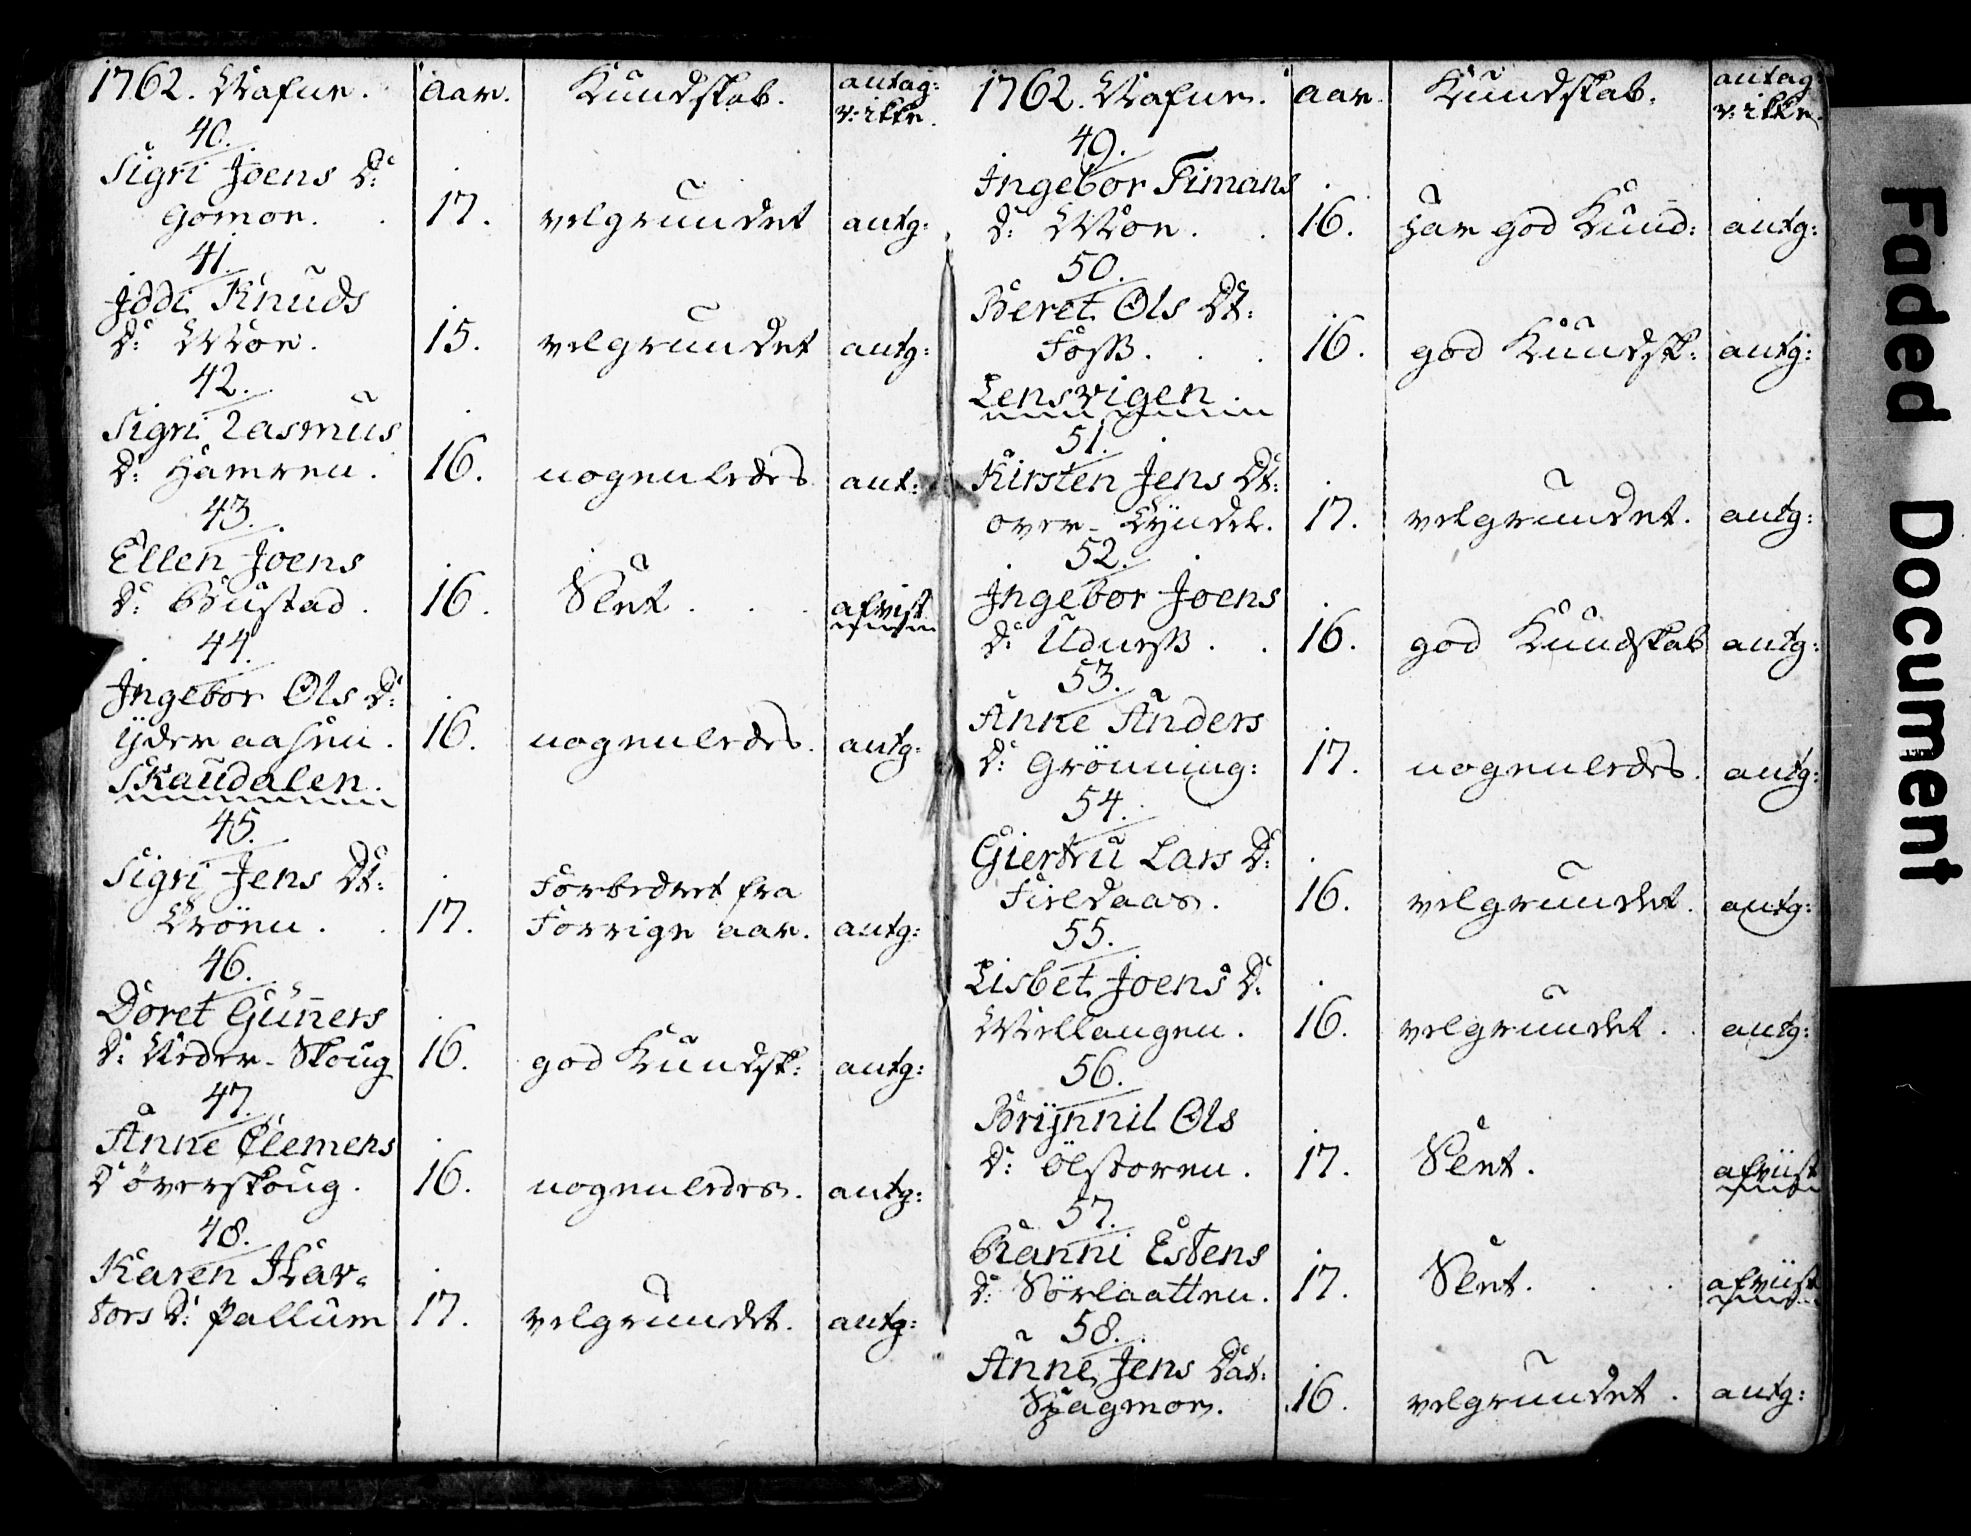 1762. Nafne. aar. Kundskab. antag: v: ikke.
40.
Sigri Joens D:
Gomon. 17. velgrundet antg:
41.
Iddi Knuds
D: Moe. 15. velgrundet antg:
42.
Sigri Rasmus
D: Hamren. 16. nogenledes ant:
43.
Ellen Joens
D: Bustad. 16. Slet. afvist
44.
Ingebor Ols D:
ÿder aasen. 16. nogenledes. antg:
Skaudalen.
45.
Sigri Jens Dt:
Kröen. 17. Forbedret fra Forrige aar. antg:
46.
Doret Guñers
D: Neder-Skoug 16. god Kundsk: antg:
47.
Anne Clemens
D: överskoug. 16. nogenledes. antg:
48.
Karen Har-
tors D: Pallum 17. velgrundet. antg:
1762. Nafne. aar. Kundskab. antag: v: ikke.
49.
Ingebor Timans
D: Moe. 16. Har god Kund: antg:
50.
Beret Ols Dt:
Foss. 16. god Kundsk: antg:
Lensvigen
51.
Kirsten Jens Dt:
over-Kÿndel. 17. velgrundet. antg:
52.
Ingebor Joens
D: Uduess. 16. god Kundskab antg:
53.
Anne Anders
D: Grönning: 17. nogenledes. antg:
54.
Giertru Lars D:
Fieldaas. 16. velgrundet. antg:
55.
Lisbet Joens D:
Mellangen. 16. velgrundet. antg:
56.
Brÿnnil Ols
D: Ölstoren. 17. Slet. afviist
57.
Ranni Estens
D: Sörlaatten. 17. Slet. afviist
58.
Anne Jens Dat:
Skagmoe. 16. velgrundet. antg:
Faded Document